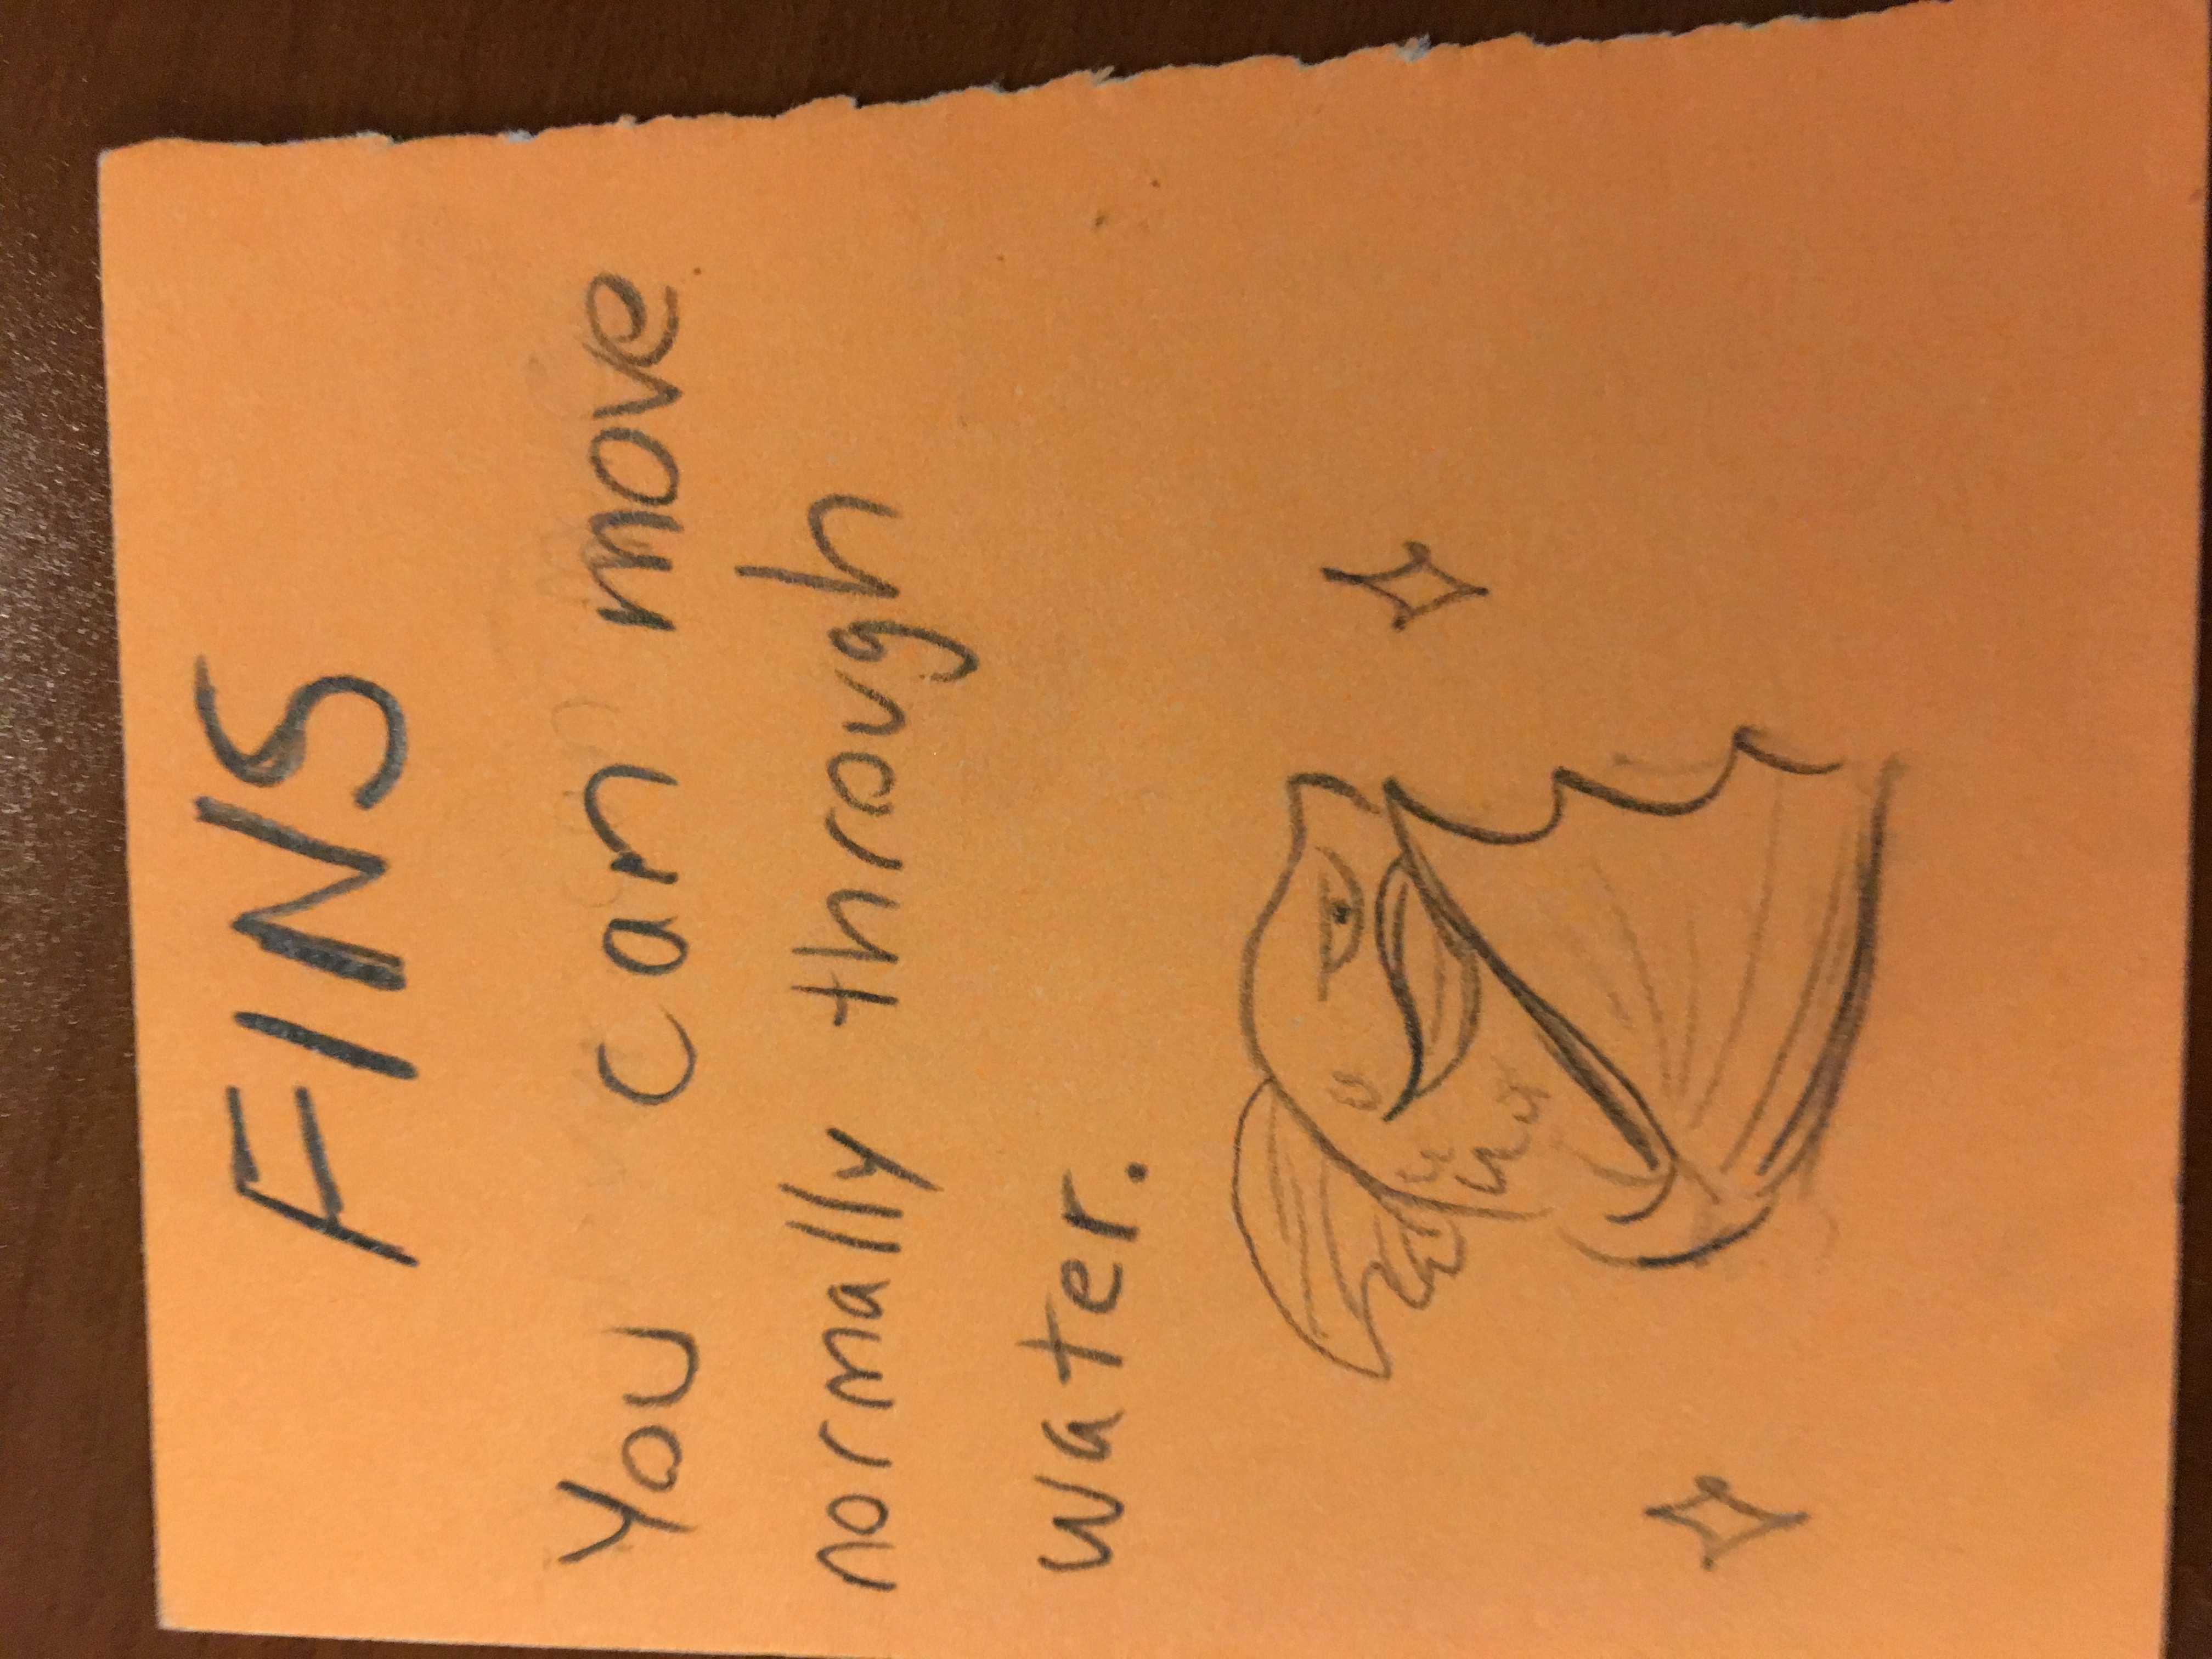 FINS
You can move
normally through
water.